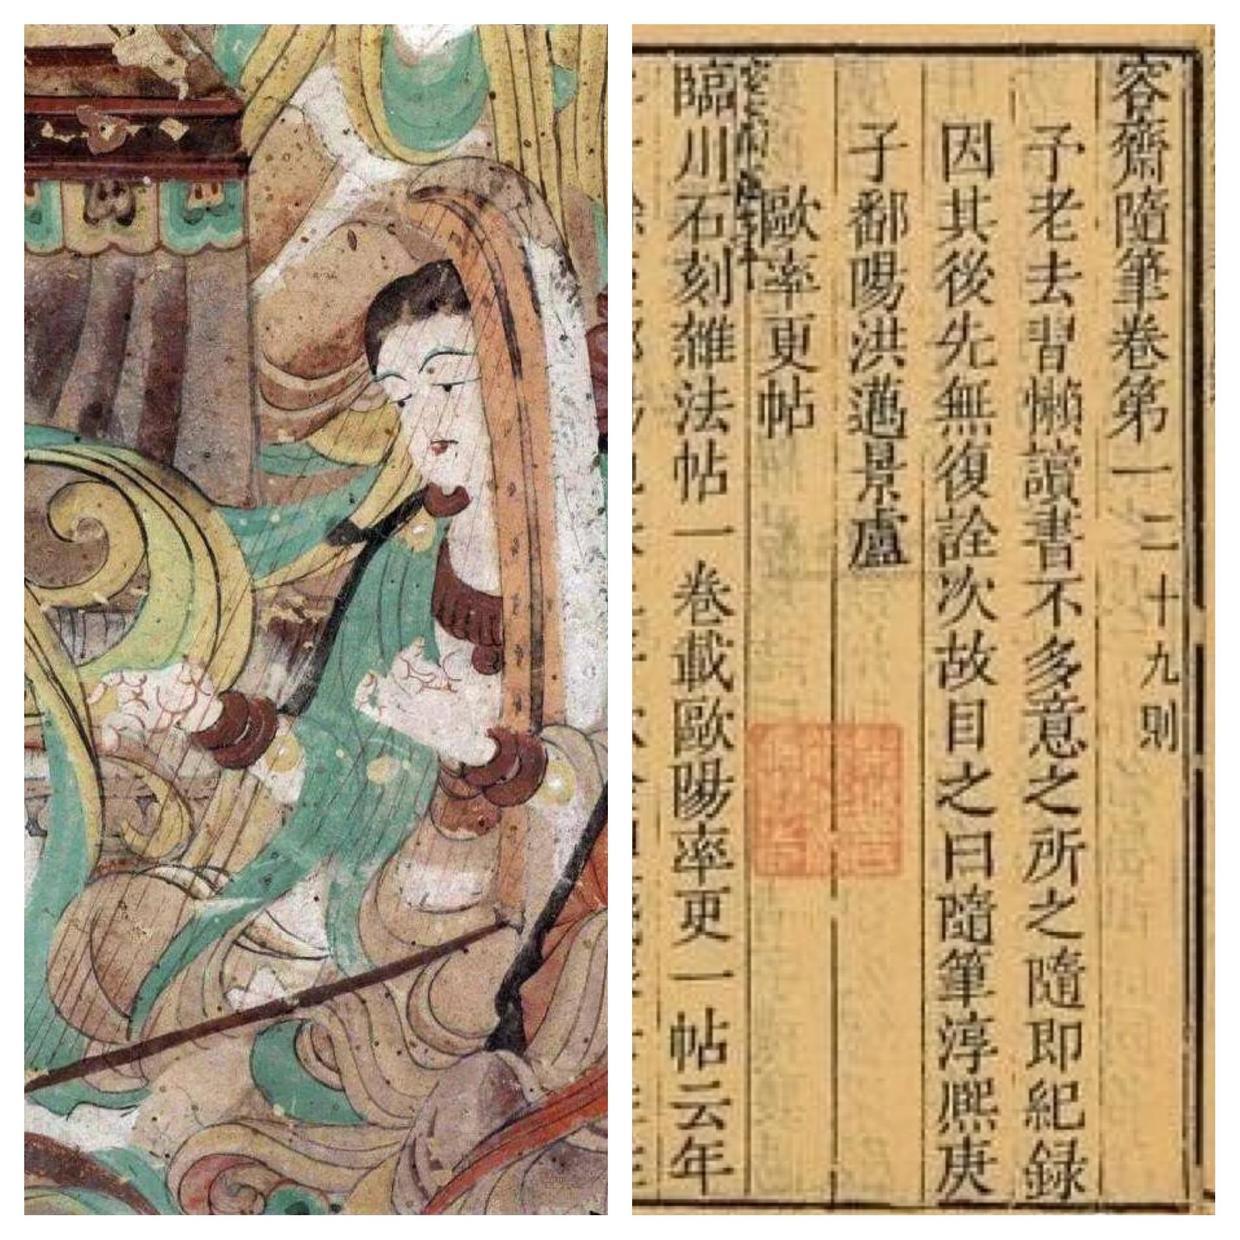 容齋隨筆卷第一 二十九則
子老去習懶讀書不多意之所之隨即紀錄
因其後先無復詮次故目之曰隨筆淳熙庚
子鄱陽洪邁景盧
歐率更帖
臨川石刻雜法帖一卷載歐陽率更一帖云年